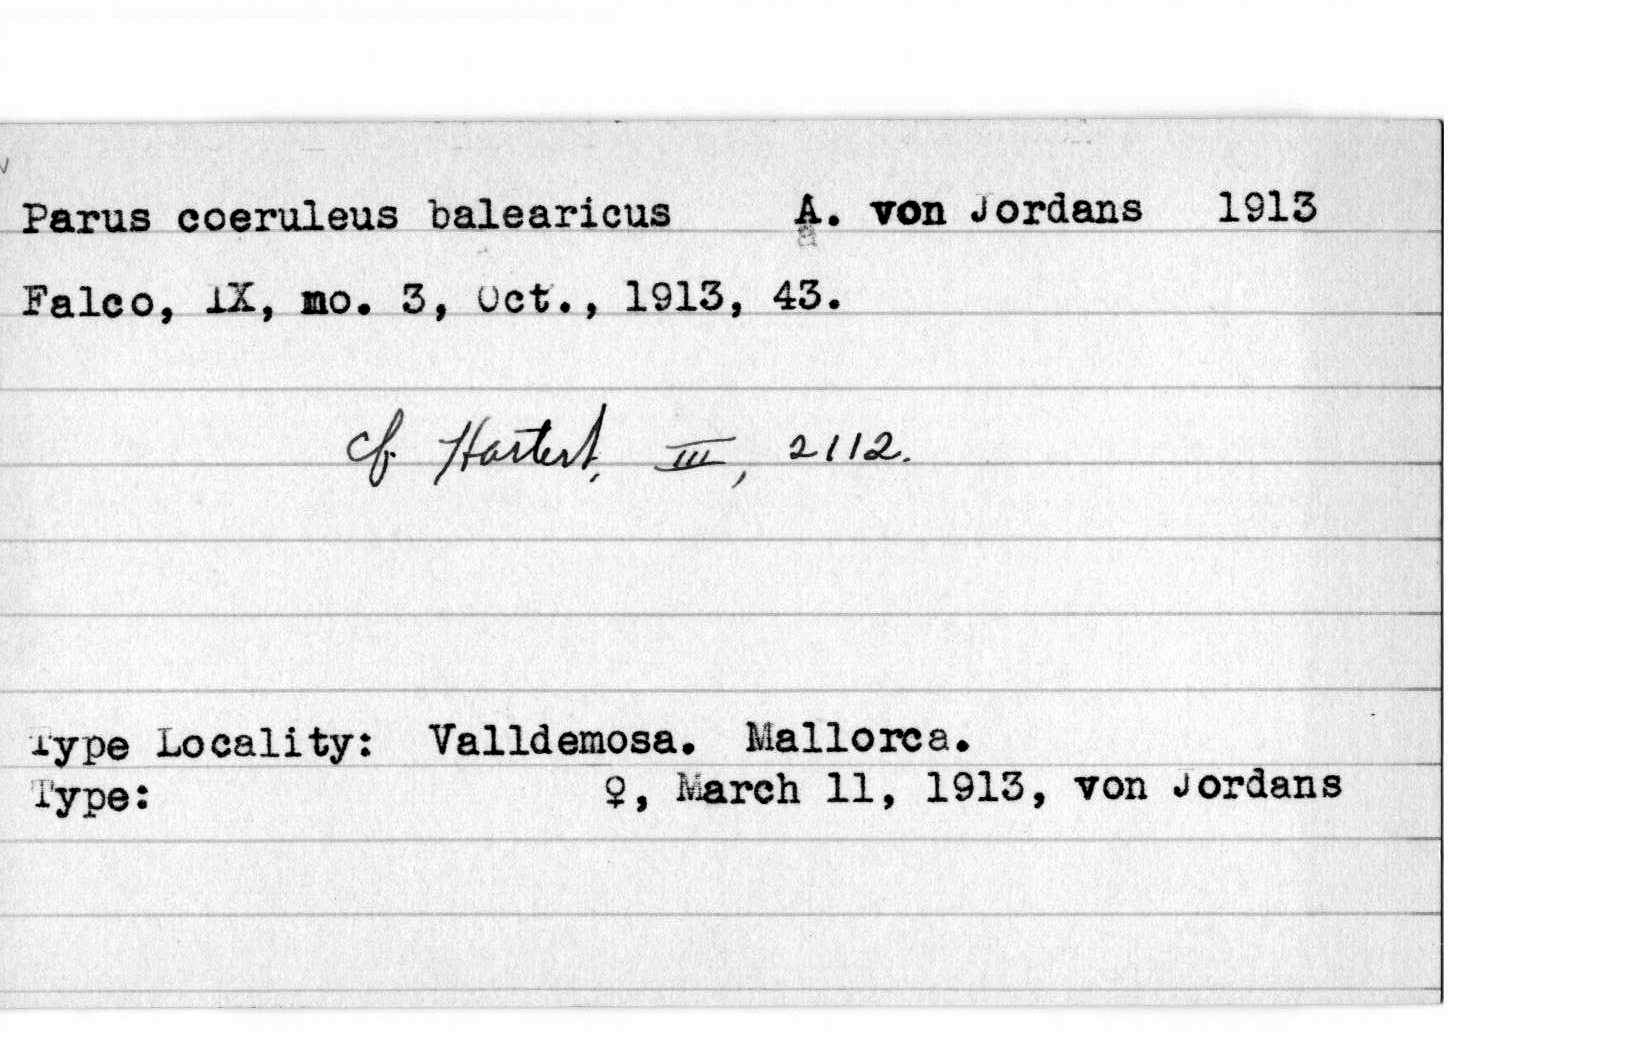 Parus coeruleus balearicus A. von Jordans 1913
Falco, IX, no. 3, Oct., 1913, 43.
cf. Hartert, III, 2112.
Type Locality: Valldemosa. Mallorca.
Type: ♀, March 11, 1913, von Jordans